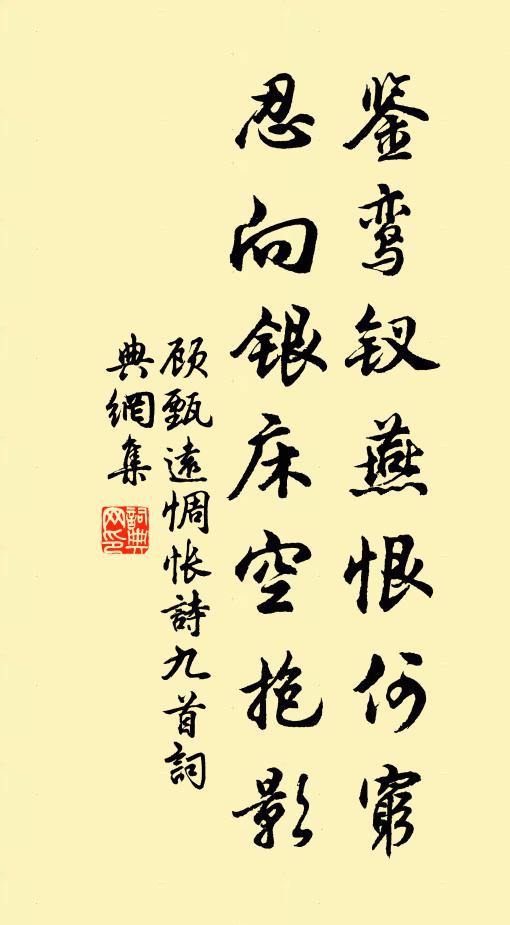 鉴鸾钗燕恨何窮
忍向银床空抱影
顾甄遠惆怅詩九首詞
典網集
詞典网印